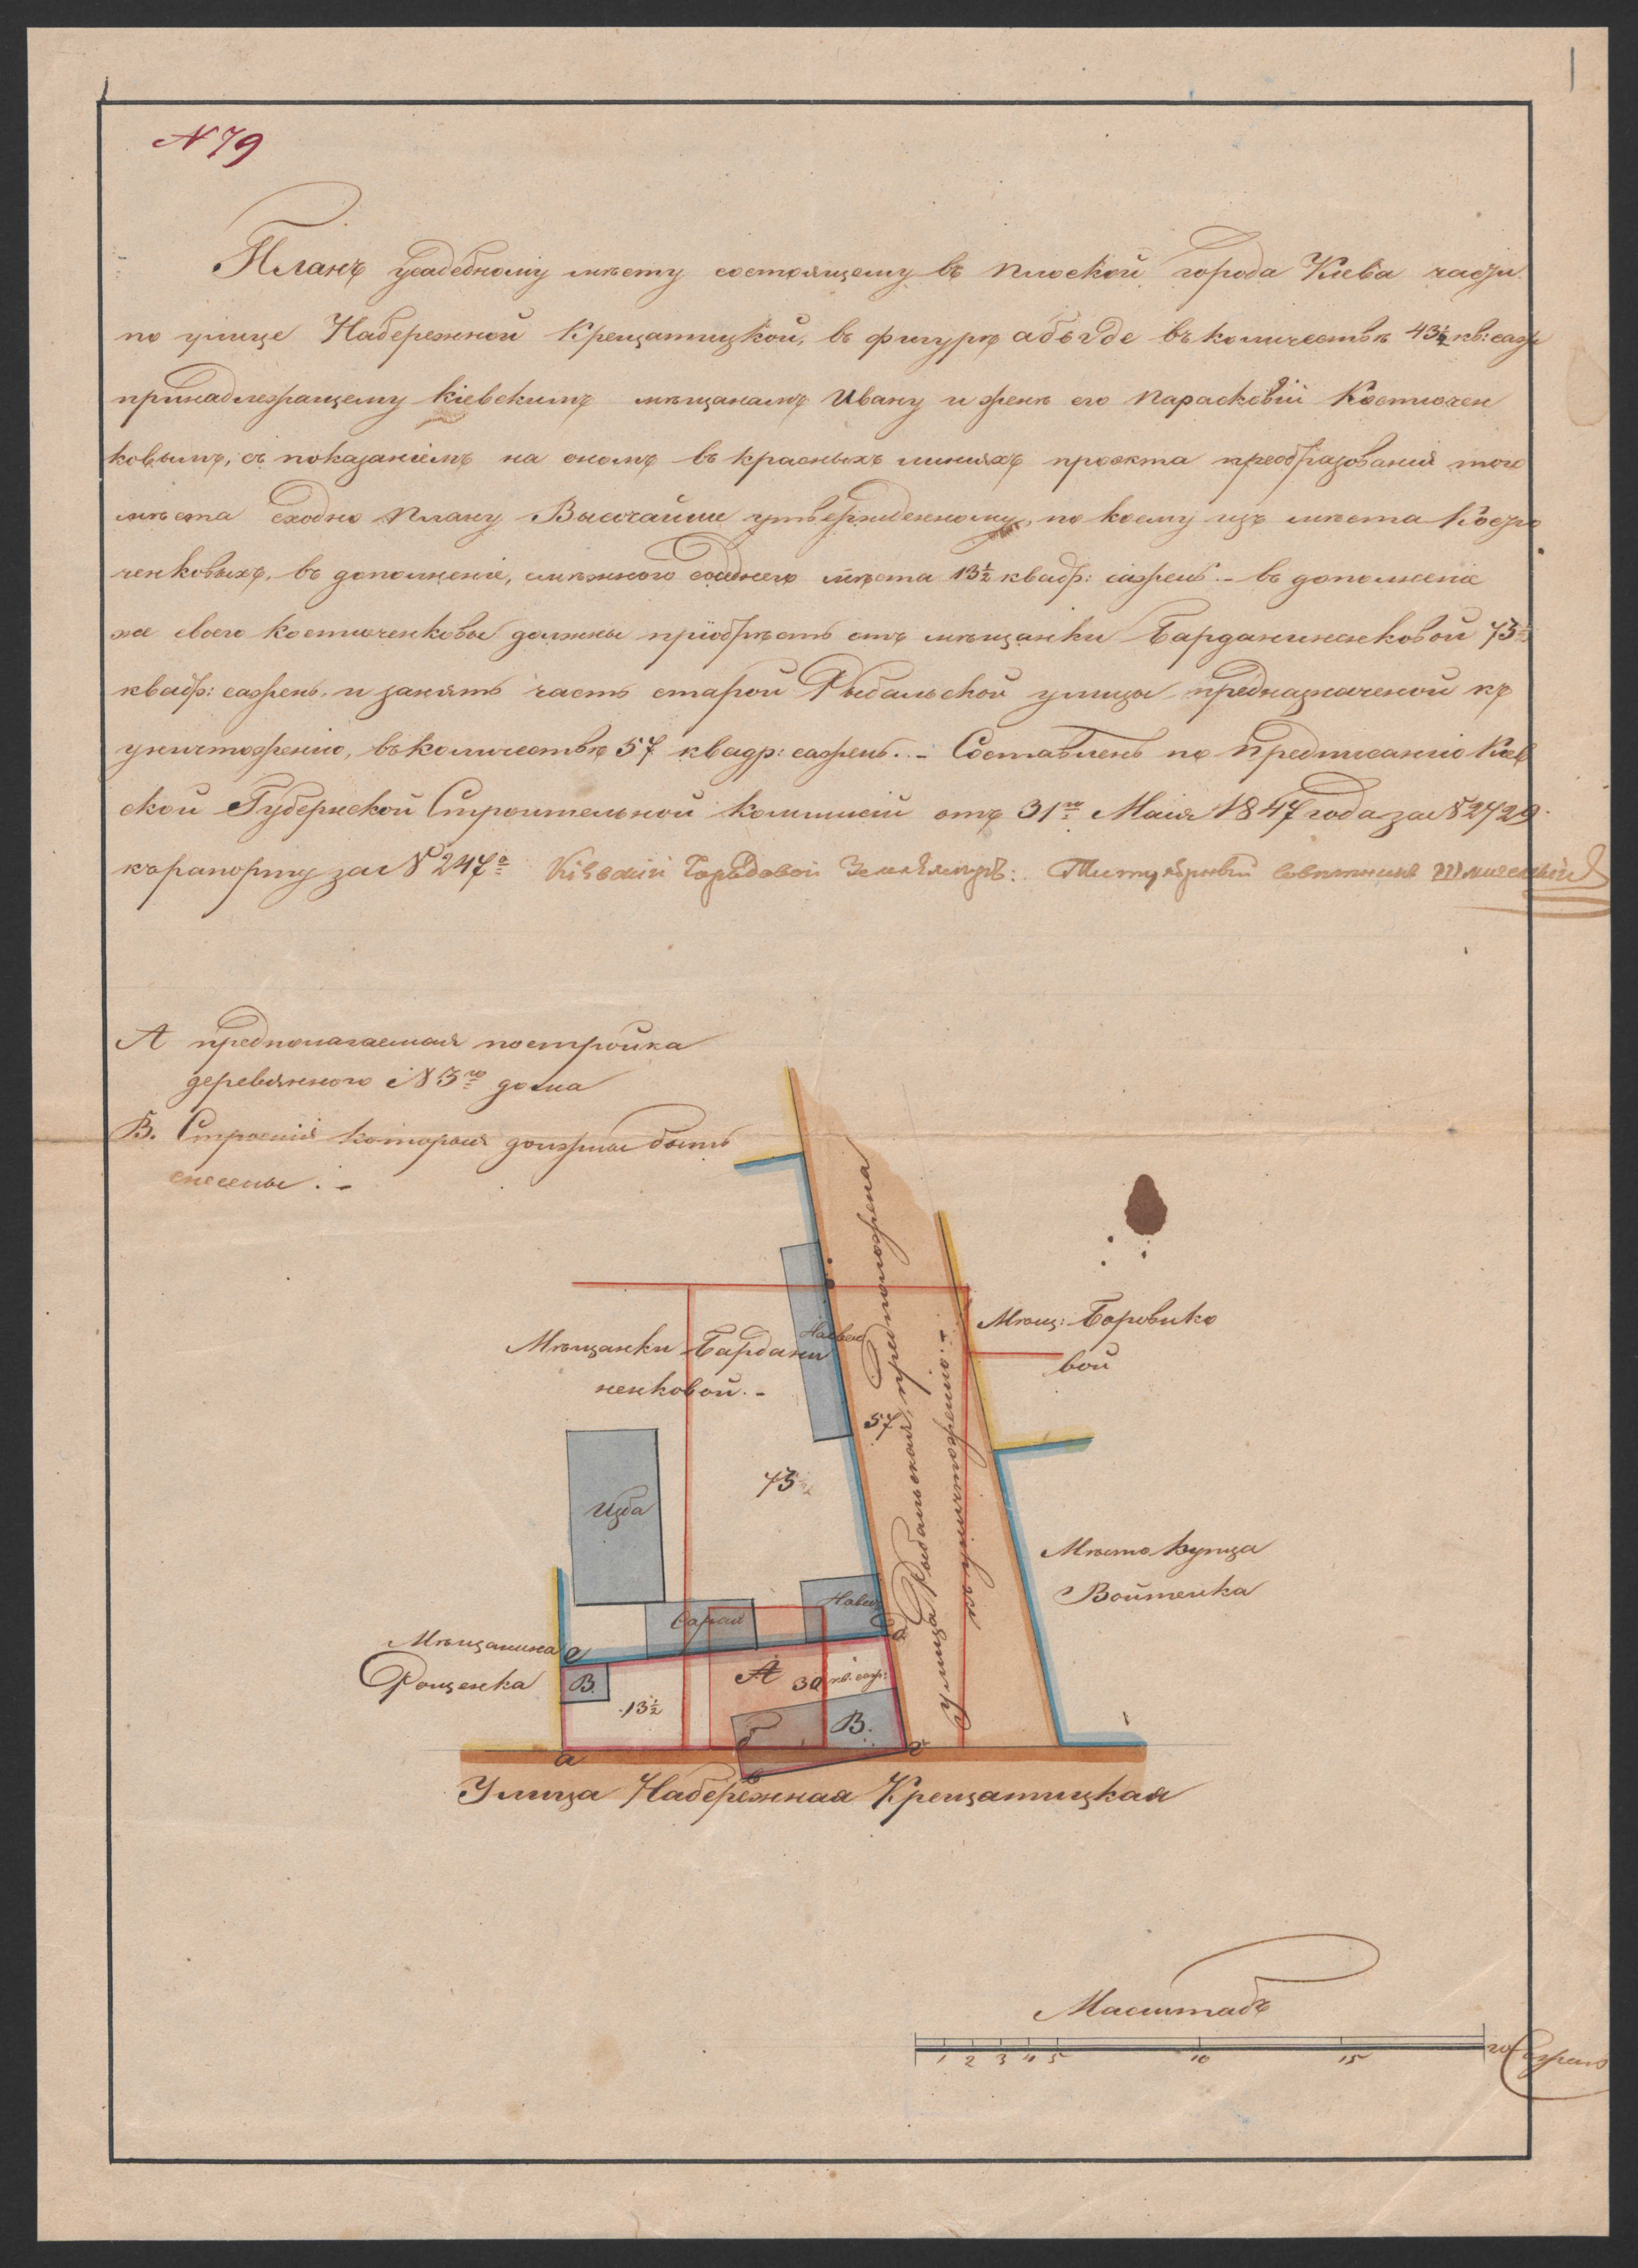 N 79
Планъ усадебному мѣсту состоящему въ плоской города Кіева части
по улице Набережной Крещатицкой, въ фигурѣ абвгде въ количествѣ 43½ кв: саж
принадлежащему кіевскимъ мѣщанамъ Ивану и женѣ его Парасковіи Костючен
ковымъ, съ показаніемъ на ономъ въ красныхъ линіяхъ проэкта преобразованія того
мѣста сходно плану Высочайше утвержденному, по коему изъ мѣста Костю
ченковыхъ, въ дополненіе, смѣжного мѣста 13½ квадр: сажень. - въ дополненіе
же своего Костюченковы должны пріобрѣсть отъ мѣщанки Барданиненковой 73½
квадр: сажень, и занять часть старой Рыбальской улицы предназначеной къ
уничтоженію, въ количествѣ 57 квадр: сажень. . - Составленъ по предписанію Кіев
ской Губернской Строительной комиссіи отъ 31го Маія 1847 года за N 2729.
къ рапорту за N 247м Кіевскій Городовой Землемѣръ: Титулярный совѣтникъ
А предполагаемая постройка
деревянного N 3го дома
В. Строенія которыя должны быть
снесены. -
Мѣщанки Бардани
ненковой. -
Навесъ
Мѣщ: Боровико
вой
57
73½
Улица Рыбальская, предположена
къ уничтоженію. -
Изба
Сарай
Навесъ
Мѣсто купца
Войтенка
Мѣщанина
Рощенка
е
д
В.
13½
А
30 кв. саж:
В.
а
б
в
г
Улица Набережная Крещатицкая
Масштабъ
1 2 3 4 5 10 15 20 Сажень